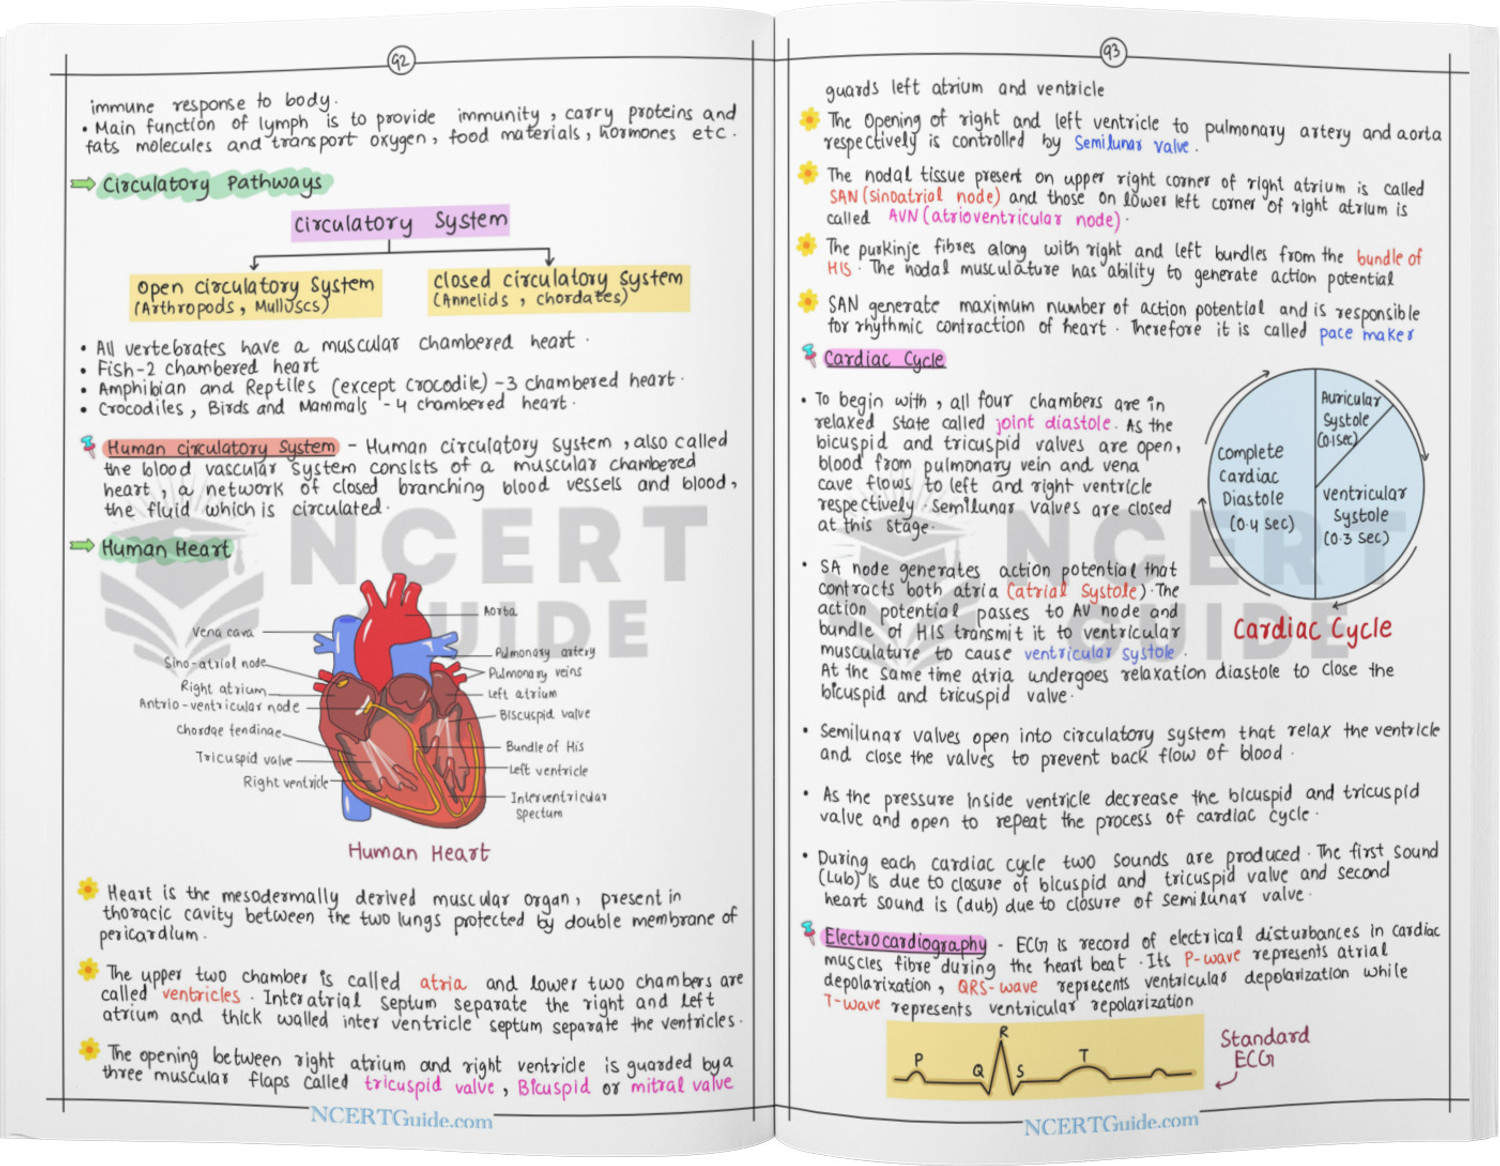 92
immune response to body.
• Main function of lymph is to provide immunity, carry proteins and
fats molecules and transport oxygen, food materials, hormones etc.
Circulatory Pathways
Circulatory System
open circulatory System
(Arthropods, Mulluscs)
closed circulatory System
(Annelids, chordates)
• All vertebrates have a muscular chambered heart.
• Fish-2 chambered heart
• Amphibian and Reptiles (except crocodile) -3 chambered heart.
• Crocodiles, Birds and Mammals - 4 chambered heart.
Human circulatory System - Human circulatory system, also called
the blood vascular system consists of a muscular chambered
heart, a network of closed branching blood vessels and blood,
the fluid which is circulated.
Human Heart
NCERT
GUIDE
Aorta
Vena cava
Pulmonary artery
Sino-atrial node
Pulmonary veins
Right atrium
Left atrium
Antrio-ventricular node
Biscuspid valve
Chordae tendinae
Bundle of His
Tricuspid valve
Left ventricle
Right ventricle
Interventricular
Spectum
Human Heart
Heart is the mesodermally derived muscular organ, present in
thoracic cavity between the two lungs protected by double membrane of
pericardium.
The upper two chamber is called atria and lower two chambers are
called ventricles. Interatrial septum separate the right and left
atrium and thick walled inter ventricle septum separate the ventricles.
The opening between right atrium and right ventricle is guarded by a
three muscular flaps called tricuspid valve, Bicuspid or mitral valve
NCERTGuide.com
93
guards left atrium and ventricle
The Opening of right and left ventricle to pulmonary artery and aorta
respectively is controlled by Semilunar valve.
The nodal tissue present on upper right corner of right atrium is called
SAN (sinoatrial node) and those on lower left corner of right atrium is
called AVN (atrioventricular node).
The purkinje fibres along with right and left bundles from the bundle of
HIS. The nodal musculature has ability to generate action potential
SAN generate maximum number of action potential and is responsible
for rhythmic contraction of heart. Therefore it is called pace maker
Cardiac Cycle
• To begin with, all four chambers are in
relaxed state called joint diastole. As the
bicuspid and tricuspid valves are open,
blood from pulmonary vein and vena
cave flows to left and right ventricle
respectively. Semilunar valves are closed
at this stage.
Auricular
Systole
(0.1sec)
Complete
Cardiac
Diastole
(0.4 sec)
ventricular
Systole
(0.3 sec)
Cardiac Cycle
NCERT
GUIDE
• SA node generates action potential that
contracts both atria (atrial Systole). The
action potential passes to AV node and
bundle of HIS transmit it to ventricular
musculature to cause ventricular systole.
At the same time atria undergoes relaxation diastole to close the
bicuspid and tricuspid valve.
• Semilunar valves open into circulatory system that relax the ventricle
and close the valves to prevent back flow of blood.
• As the pressure inside ventricle decrease the bicuspid and tricuspid
valve and open to repeat the process of cardiac cycle.
• During each cardiac cycle two sounds are produced. The first sound
(Lub) is due to closure of bicuspid and tricuspid valve and second
heart sound is (dub) due to closure of semilunar valve.
Electrocardiography - ECG is record of electrical disturbances in cardiac
muscles fibre during the heart beat. Its P-wave represents atrial
depolarixation, QRS-wave represents ventricular depolarization while
T-wave represents ventricular repolarization
P
Q
R
S
T
Standard
ECG
NCERTGuide.com